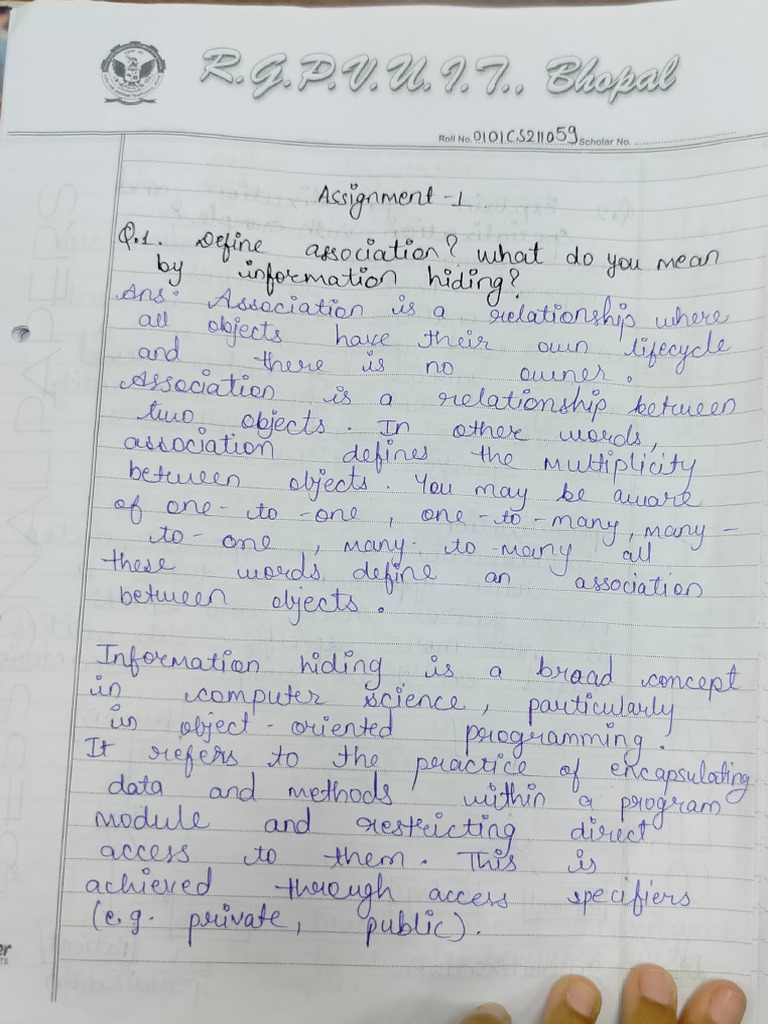 R.G.P.V.U.I.T., Bhopal
Roll No. 0101CS211059 Scholar No.
Assignment -1
Q.1. Define association? What do you mean
by information hiding?
Ans: Association is a relationship where
all objects have their own lifecycle
and there is no owner.
Association is a relationship between
two objects. In other words,
association defines the multiplicity
between objects. You may be aware
of one-to-one, one-to-many, many-
to-one, many-to-many all
these words define an association
between objects.
Information hiding is a broad concept
in computer science, particularly
in object-oriented programming.
It refers to the practice of encapsulating
data and methods within a program
module and restricting direct
access to them. This is
achieved through access specifiers
(e.g. private, public).